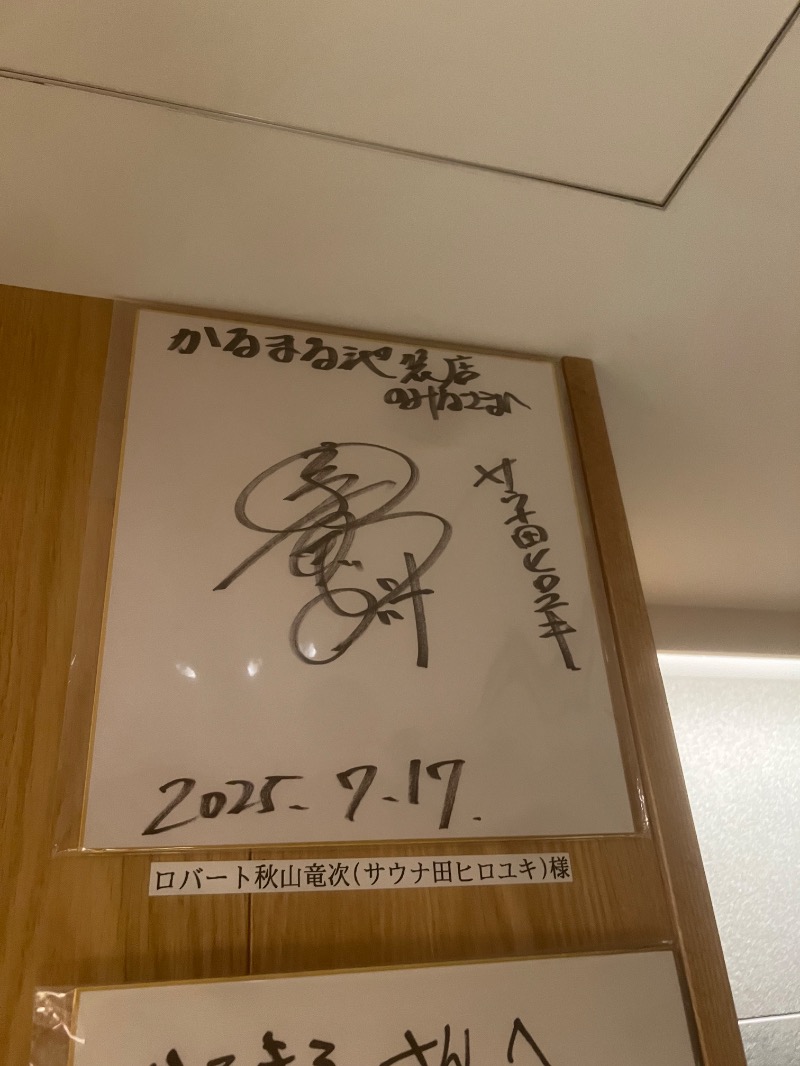 かるまる池袋店
のみなさまへ
サウナ田ヒロユキ
2025.7.17.
ロバート秋山竜次(サウナ田ヒロユキ)様
さんへ